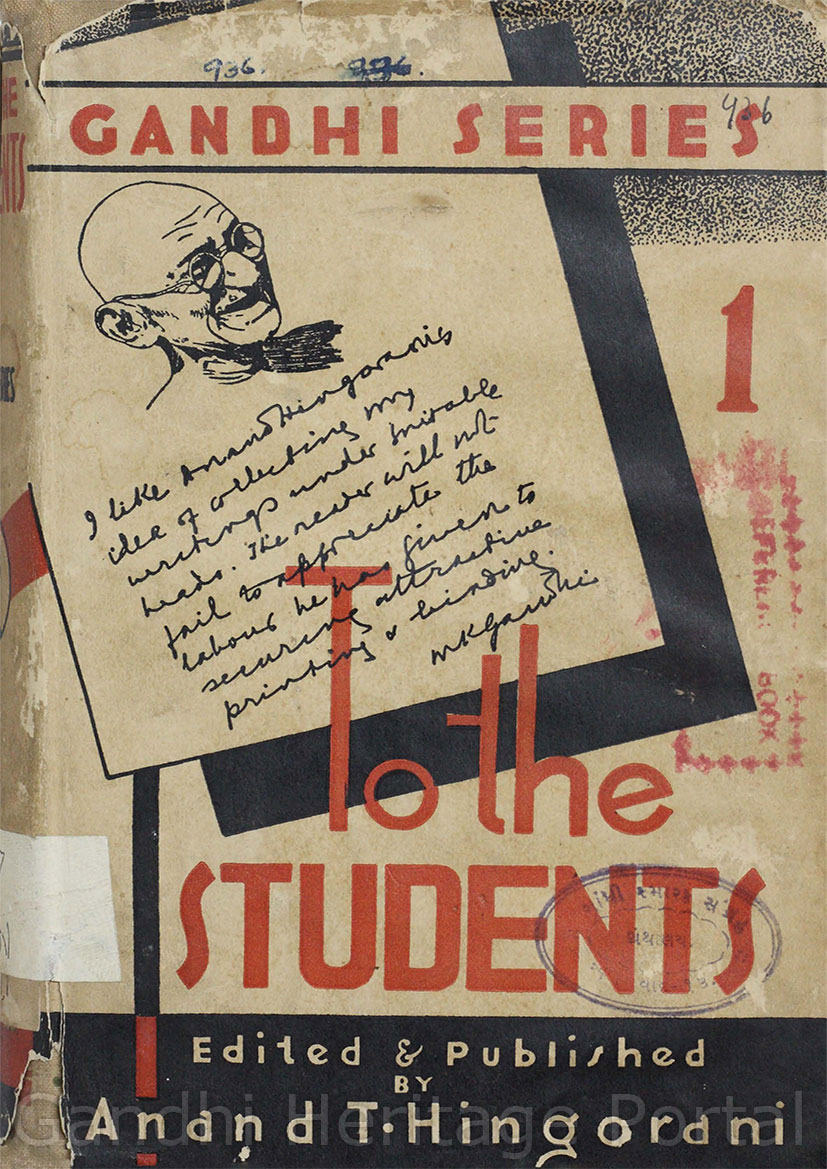 936.
GANDHI SERIES
936
1
I like Anand Hingorani's
idea of collecting my
writings under suitable
heads. The reader will not
fail to appreciate the
labour he has given to
securing attractive
printing & binding.
MKGandhi
To the
STUDENTS
BOOK
ગાંધી સ્મારક સંગ્રહ
ગ્રંથાલય
Edited & Published
BY
Anand T. Hingorani
Gandhi Heritage Portal